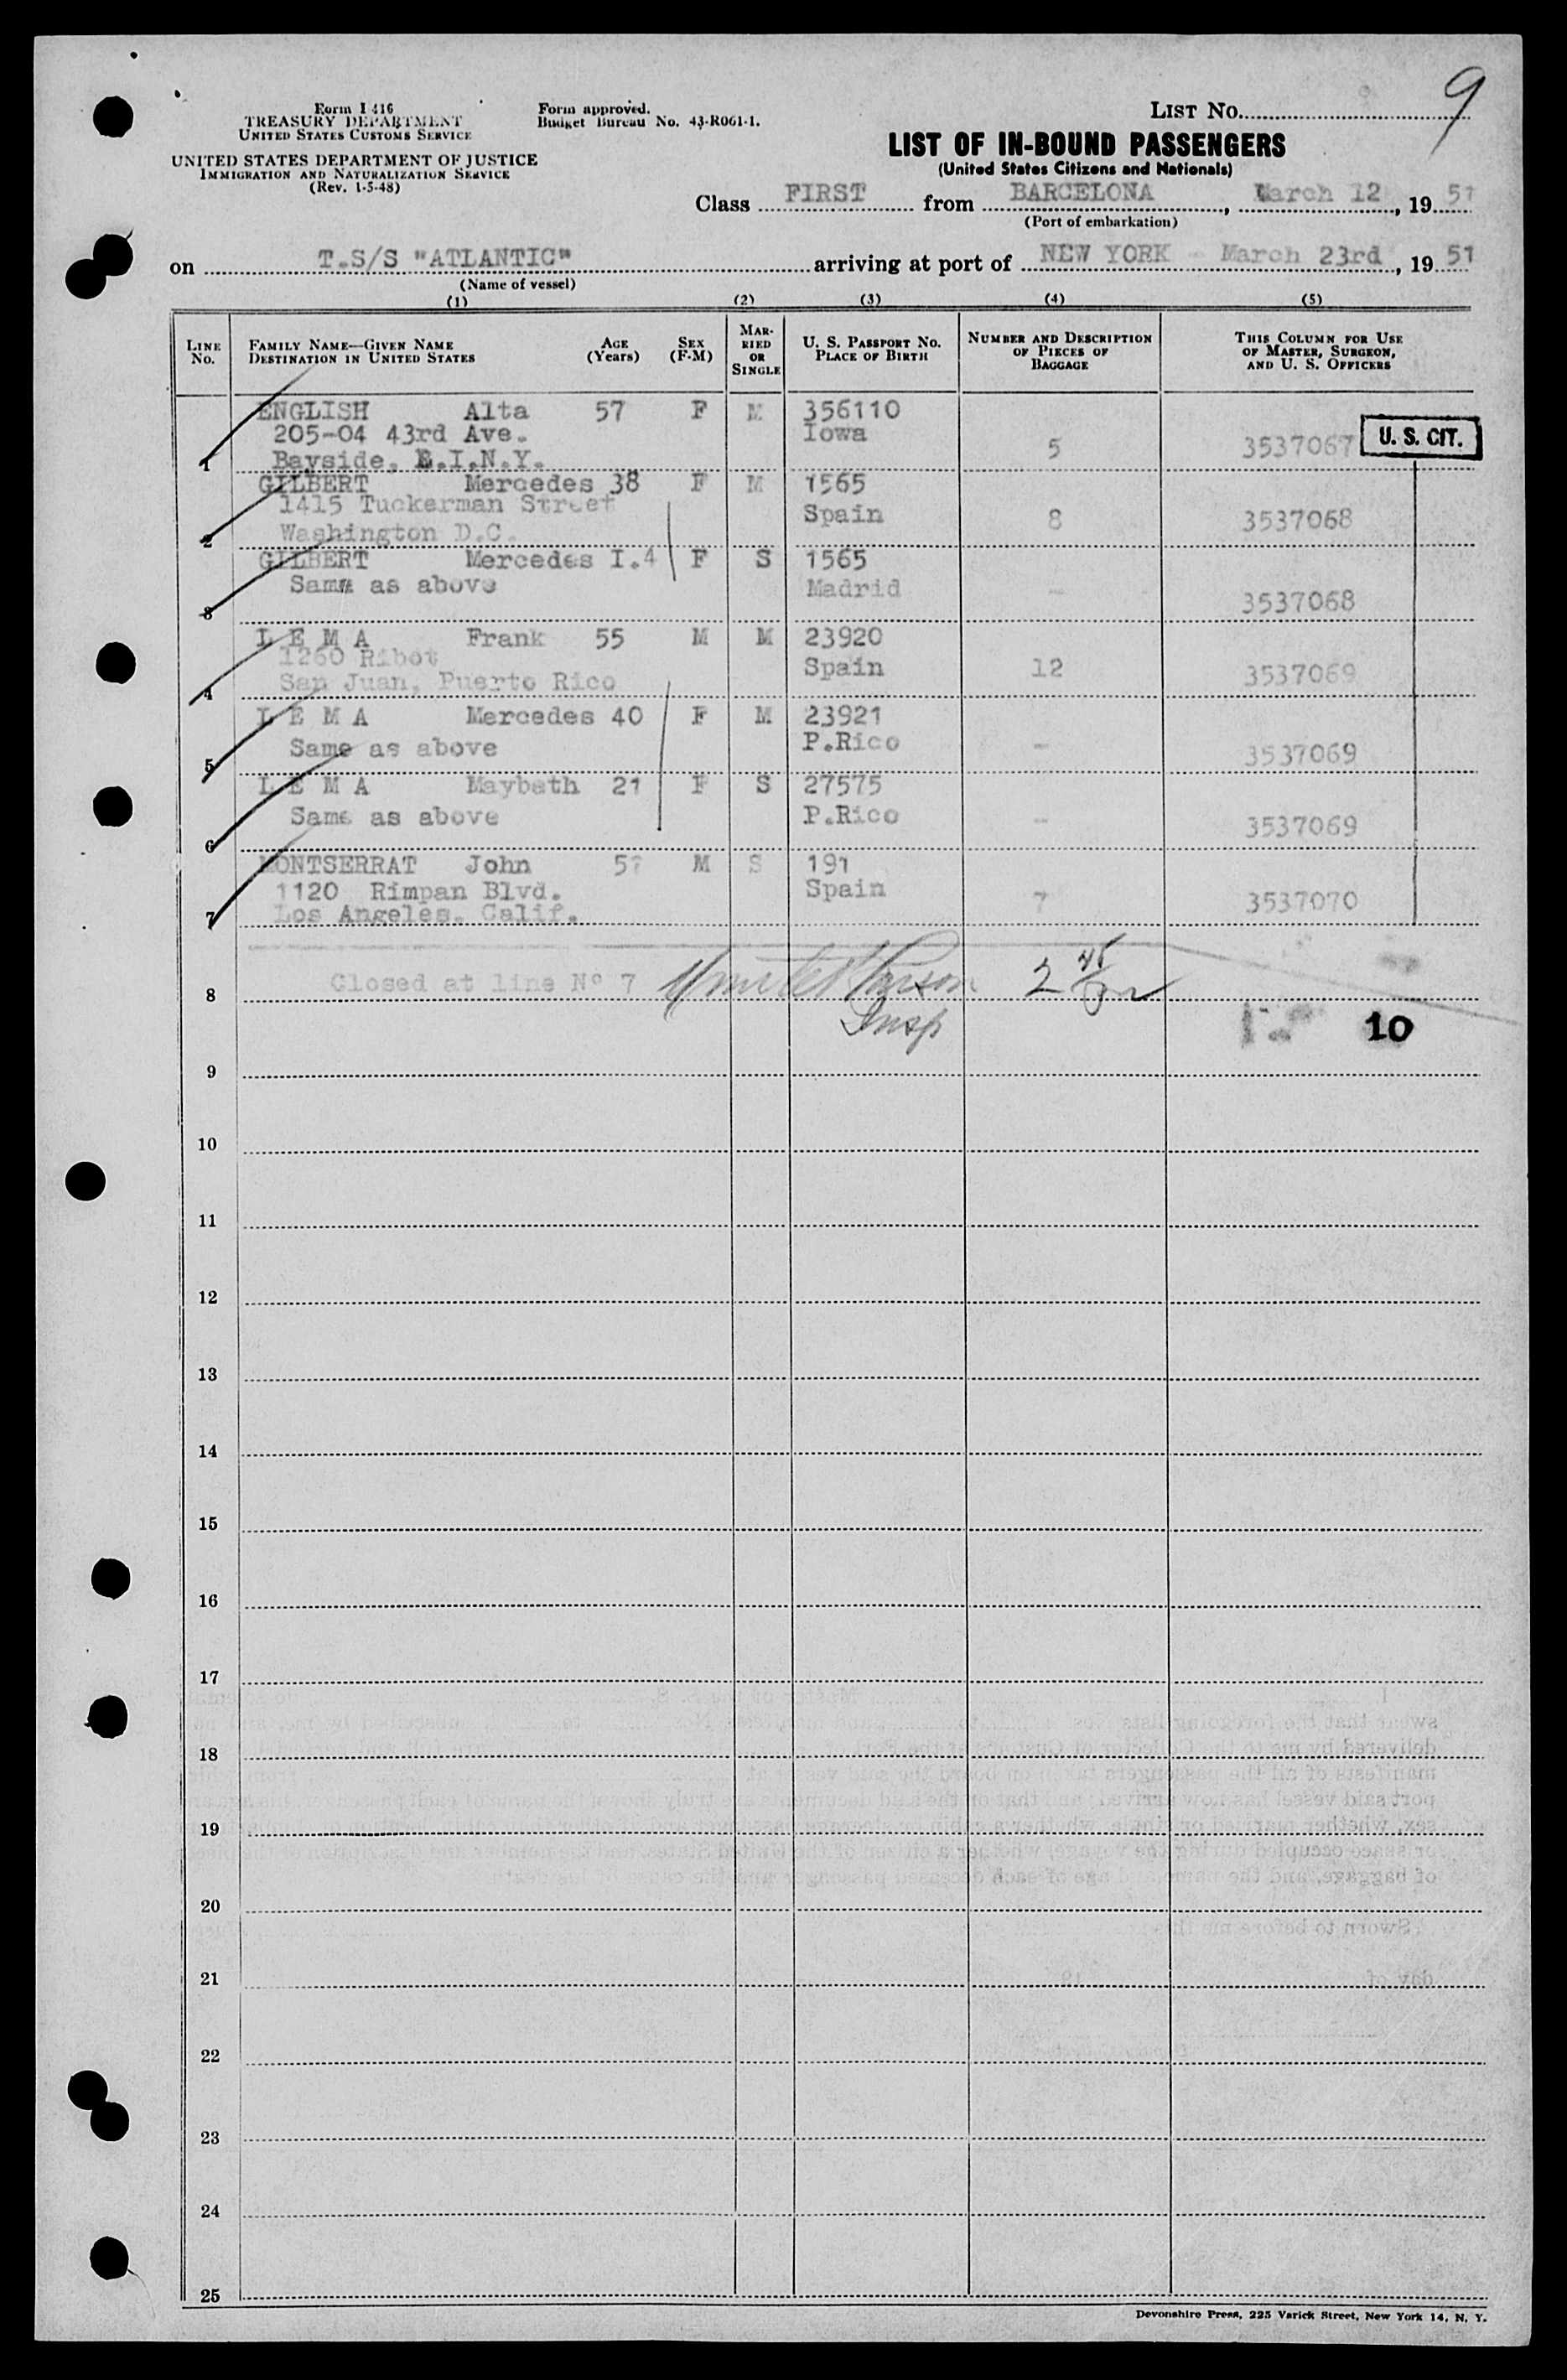 9
Form I 416
TREASURY DEPARTMENT
UNITED STATES CUSTOMS SERVICE
UNITED STATES DEPARTMENT OF JUSTICE
IMMIGRATION AND NATURALIZATION SERVICE
(Rev. 1-5-48)
Form approved.
Budget Bureau No. 43-R061-1.
LIST No.
LIST OF IN-BOUND PASSENGERS
(United States Citizens and Nationals)
Class FIRST from BARCELONA, March 12, 1951
(Port of embarkation)
on T.S/S "ATLANTIC" arriving at port of NEW YORK - March 23rd, 1951
(Name of vessel)
(1) (2) (3) (4) (5)
LINE No. FAMILY NAME—GIVEN NAME DESTINATION IN UNITED STATES AGE (Years) SEX (F-M) MARRIED OR SINGLE U. S. PASSPORT NO. PLACE OF BIRTH NUMBER AND DESCRIPTION OF PIECES OF BAGGAGE THIS COLUMN FOR USE OF MASTER, SURGEON, AND U. S. OFFICERS
ENGLISH Alta 57 F M 356110
205-04 43rd Ave. Iowa
1 Bayside, L.I.N.Y. 5 3537067 U. S. CIT.
GILBERT Mercedes 38 F M 1565
1415 Tuckerman Street Spain
2 Washington D.C. 8 3537068
GILBERT Mercedes I. 4 F S 1565
Same as above Madrid
3 - 3537068
L E M A Frank 55 M M 23920
1260 Ribot Spain
4 San Juan, Puerto Rico 12 3537069
L E M A Mercedes 40 F M 23921
Same as above P.Rico
5 - 3537069
L E M A Maybeth 21 F S 27575
Same as above P.Rico
6 - 3537069
MONTSERRAT John M S 191
1120 Rimpan Blvd. Spain
7 Los Angeles, Calif. 7 3537070
8 Closed at line Nº 7
Insp
10
9
10
11
12
13
14
15
16
17
18
19
20
21
22
23
24
25
Devonshire Press, 225 Varick Street, New York 14, N. Y.